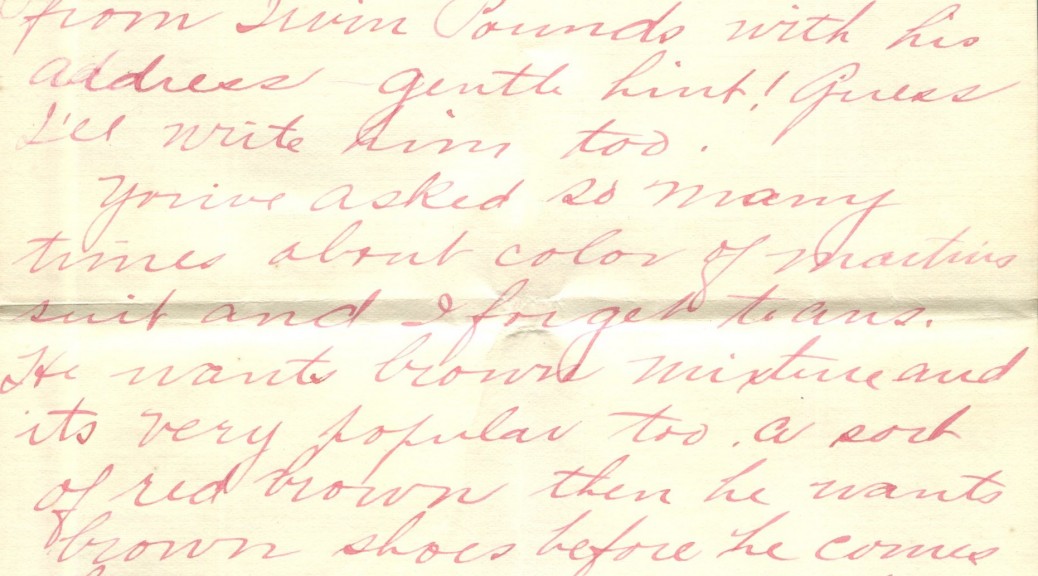 from Irvin Pounds with his
address - gentle hint! Guess
I'll write him too.
You've asked so many
times about color of Martins
suit and I forget to ans.
He wants brown mixture and
its very popular too. a sort
of red brown then he wants
brown shoes before he comes